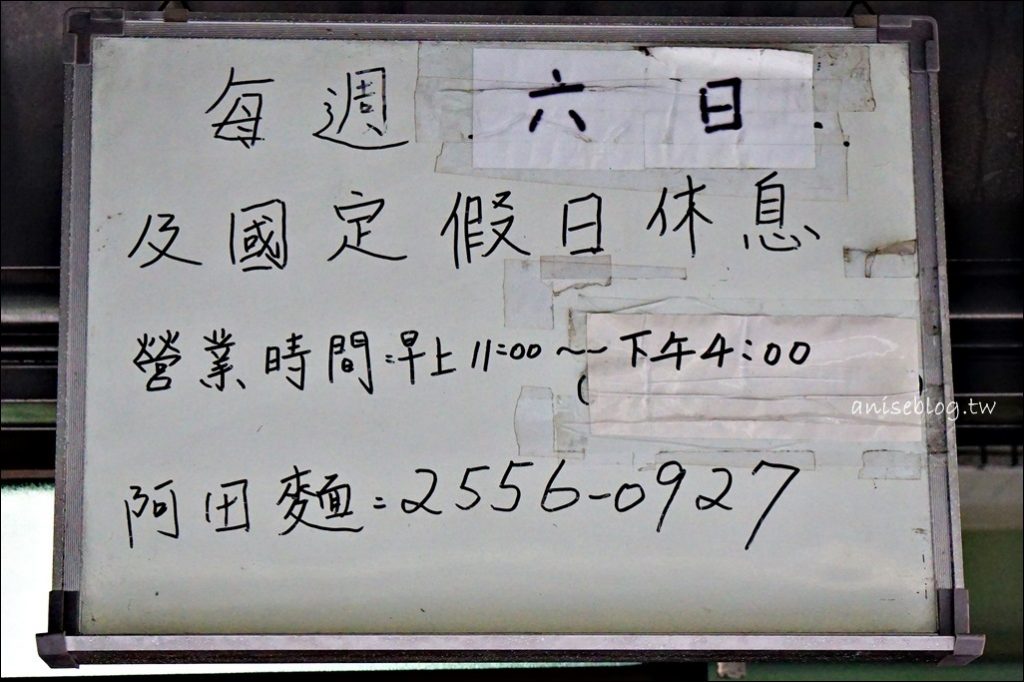 每週 六 日
及國定假日休息
營業時間:早上11:00~下午4:00
aniseblog.tw
阿田麵:2556-0927